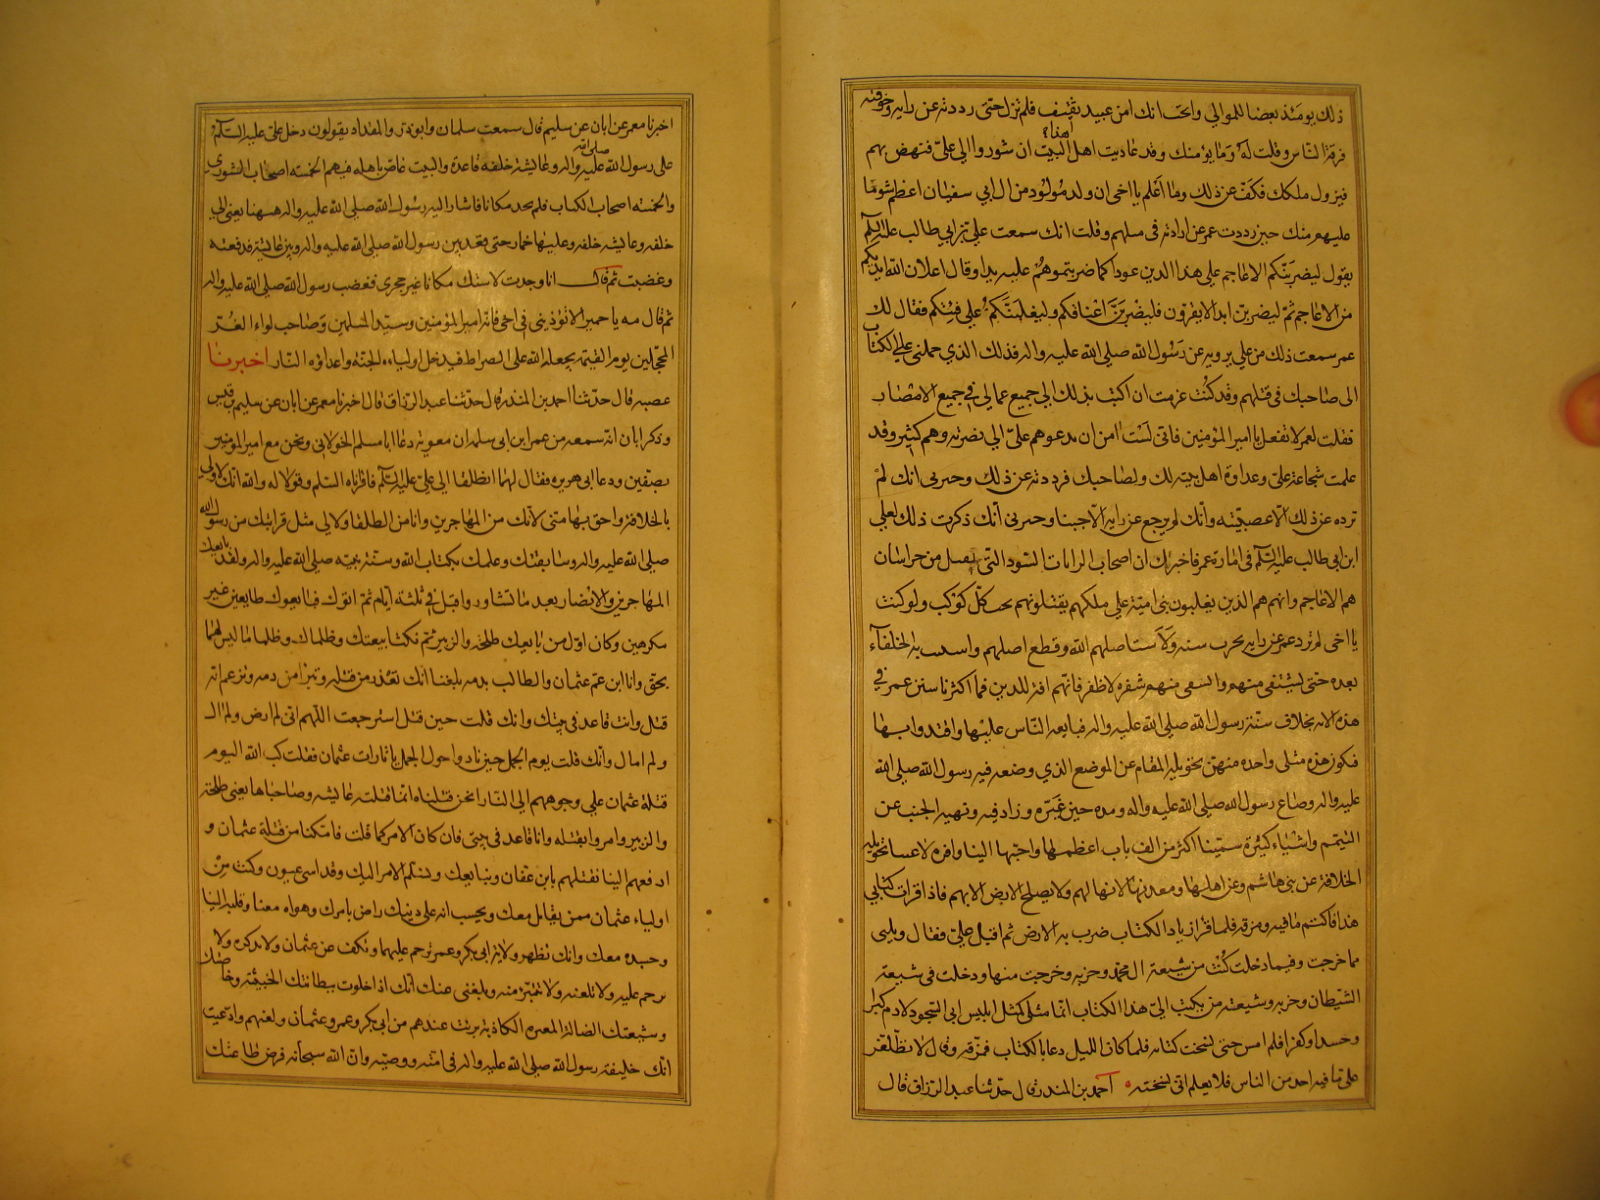 ذلك يومئذ بعضا للموالي واحب انك امن عبيد ثقيف فلم تزل حتى رددته عن رايه وخوفته
فرقة الناس وقلت له وما يؤمنك وقد عاديت اهل هذا البيت ان يثوروا الي علي فتهض بهم
فيزول ملكك فكف عن ذلك وما اعلم يا اخي ان ولد مولود من ال ابي سفيان اعظم شوما
عليهم منك حين رددت عمر عن رايه في قتلهم وقلت انك سمعت علي بن ابي طالب عليه السلم
يقول ليضربنكم الاعاجم علي هذا الدين عودا كما ضربتموهم عليه بدا وقال اعلان الله ايديكم
من الاعاجم ثم ليضربن ابد الايفرون فليضربن اعناقكم وليغلبنكم علي فيئكم فقال لك
عمر سمعت ذلك من علي يرويه عن رسول الله صلي الله عليه واله فذلك الذي حملني علي الكتاب
الى صاحبك في قتلهم وقد كنت عزمت ان اكتب بذلك الي جميع عمالي في جميع الامصار
فقلت لعمر لا تفعل يا امير المؤمنين فاني لست امن ان يدعوهم علي الي نصرته وهم كثير وقد
علمت شجاعة علي وعداوة اهل بيته لك ولصاحبك فرددته عن ذلك وخبرني انك لم
ترده عن ذلك الا عصبيته وانك لم يرجع عن رايه الا جبنا وحدثني انك ذكرت ذلك لعلي
ابن ابي طالب عليه السلم في امارة عمر فاخبرك ان اصحاب الرايات السود التي تقبل من خراسان
هم الاعاجم وانهم هم الذين يغلبون بني امية علي ملكهم يقتلونهم تحت كل كوكب ولو كنت
يا اخي لم ترد عمر عن رايه بحرب سنه ولاستاصلهم الله وقطع اصلهم واسنت به الخلفاء
بعده حتى لا يبقى منهم
هذه الامه بخلاف سنة رسول الله صلي الله عليه واله فبايعه الناس عليها واقتدوا بها
فكون هذه مثلي واحده منهن تحويله المقام عن الموضع الذي وضعه فيه رسول الله صلي الله
عليه واله وصاع رسول الله صلي الله عليه واله ومده حين غيره وزاد فيه ونهيه الجنب عن
التيمم واشياء كثيرة سميتنا اكثر من الف باب اعظمها واحبها الينا واقره لاعيننا تحويله
الخلافة عن بني هاشم وعن اهلها ومعدنها لانها لهم ولا يصلح الارض الا بهم فاذا قرات كتابي
هذا فاكتم ما فيه ومزقه فلما قرا زياد الكتاب ضرب به الارض ثم اقبل علي فقال ويلي
مما خرجت وفيما دخلت كنت من شيعة ال محمد وحزبه وخرجت منها ودخلت في شيعة
الشيطان وحزبه وشيعته من يكتب الي هذا الكتاب انما مثلي كمثل ابليس ابي السجود لادم كبرا
وحسدا وكفرا فلم امس حتى نسخت كتابه فلما كان الليل دعا بالكتاب فمزقه وقال لا تطلعن
علي ما فيه احد من الناس فلا يعلم اني نسخته احمد بن المنذر قال حدثنا عبد الرزاق قال
اخبرنا معمر عن ابان عن سليم قال سمعت سلمان وابوذر والمقداد يقولون دخل علي عليه السلم
على رسول الله صلى الله عليه واله وعايشه خلفه قاعدة والبيت غاص باهله فيهم الخمسه اصحاب الشورى
والخمسه اصحاب الكتاب فلم يجد مكانا فاشار اليه رسول الله صلي الله عليه واله ههنا يعني الي
خلفه وعايشه خلفه وعليها خمار حتى قعد بين رسول الله صلي الله عليه واله وبين عايشة فدفعته
وغضبت ثم قالت انا وجدت لاستك مكانا غير حجري فغضب رسول الله صلي الله عليه واله
ثم قال مه يا حميرا لا تؤذيني في اخي فانه امير المؤمنين وسيد المسلمين وصاحب لواء الغر
المحجلين يوم القيمه يجعله الله علي الصراط فيدخل اولياءه الجنه واعداؤه النار اخبرنا
عصبه قال حدثنا احمد بن المنذر قال حدثنا عبد الرزاق قال اخبرنا معمر عن ابان عن سليم بن قيس
وذكر ابان انه سمعه من عمر ابن ابي سلمه ان معويه دعا ابا مسلم الخولاني ونحن مع امير المومنين
بصفين ودعا ابي هريره فقال لهما انطلقا الي علي عليه السلم فاقراه السلم وقولا له والله انك لاولي
بالخلافة واحق بها مني لانك من المهاجرين وانا من الطلقا ولا لي مثل قرابتك من رسول الله
صلي الله عليه واله وسابقتك وعلمك بكتاب الله وسنة نبيه صلي الله عليه واله ولقد بايعك
المهاجرين والانصار بعد ما تشاور واقبل في ثلثة ايام ثم اتوك فبايعوك طايعين غير
مكرهين وكان اول من بايعك طلحة والزبير ثم نكثا بيعتك وظلماك وظلما ما ليس لهما
بحق وانا ابن عم عثمان والطالب بدمه بلغنا انك تعتذر من قتله وتبرا من دمه وتزعم انه
قتل وانت قاعد في بيتك وانك قلت حين قتل استرجعت اللهم اني لم ارض ولم ال
ولم امال وانك قلت يوم الجمل حين نادوا حول الجمل يا ثارات عثمان فقلت كب الله اليوم
قتلة عثمان علي وجوههم الي النار انحن قتلناه انما قتلته عايشه وصاحباها يعني طلحة
والزبير وامروا بقتله وانا قاعد في بيتي فان كان الامر كما قلت فامكنا من قتلة عثمان و
ادفعهم الينا نقتلهم بابن عفان ونبايعك ونسلم الامر اليك وقد وكنت من
اولياء عثمان ممن يقاتل معك ويحسب انه علي دينك راض بامرك وهواه معنا وقلبه الينا
وجسده معك وانك تظهر ولاية ابي بكر وعمر وترحم عليهما وتكف عن عثمان ولا تذكره ولا
ترحم عليه ولا تلعنه ولا تتبرء منه وبلغني عنك انك اذا خلوت ببطانتك الخبيثة وخاصتك
وشيعتك الضالة الكاذبة بريت عندهم من ابي بكر وعمر وعثمان ولعنهم وادعيت
انك خليفة رسول الله صلي الله عليه واله في امته ووصيه وان الله سبحانه فرض طاعتك